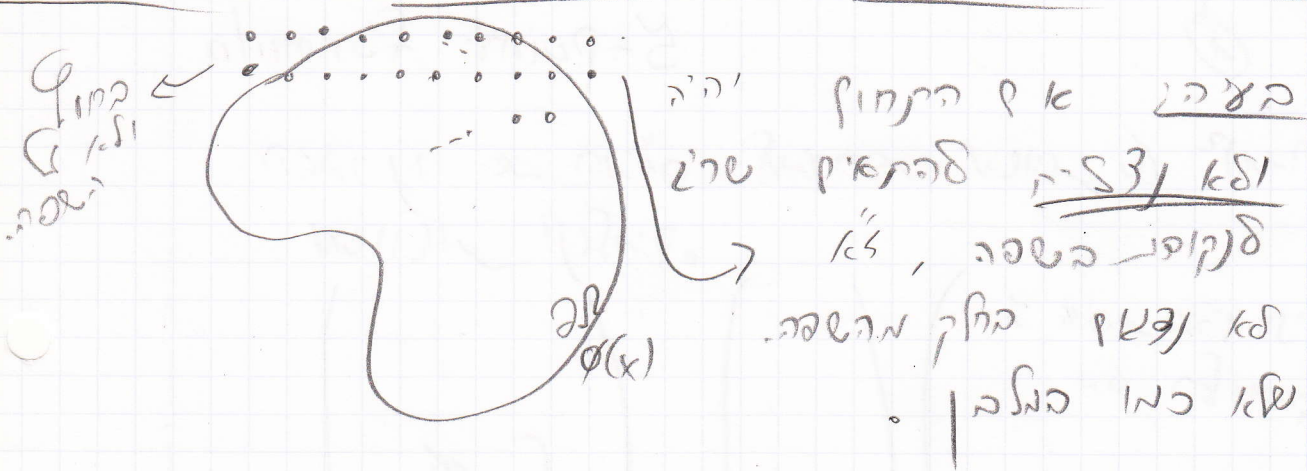 בעיה: אם התחום יהיה
ולא נצליח להתאים שריג
לנקודות בשפה, ז"א
לא נפגש בחלק מהשפה.
שלא כמו במלבן.
בחוץ
ולא על
השפה.
∂Ω
φ(x)